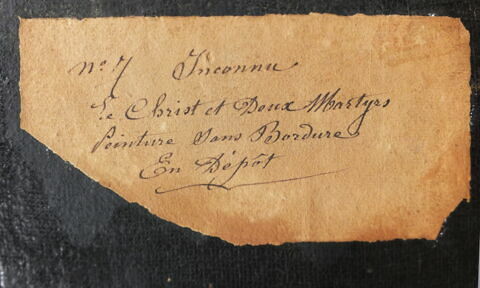 No. 7 Inconnu
Le Christ et Deux Martyrs
Peinture Sans Bordure
En Dépôt